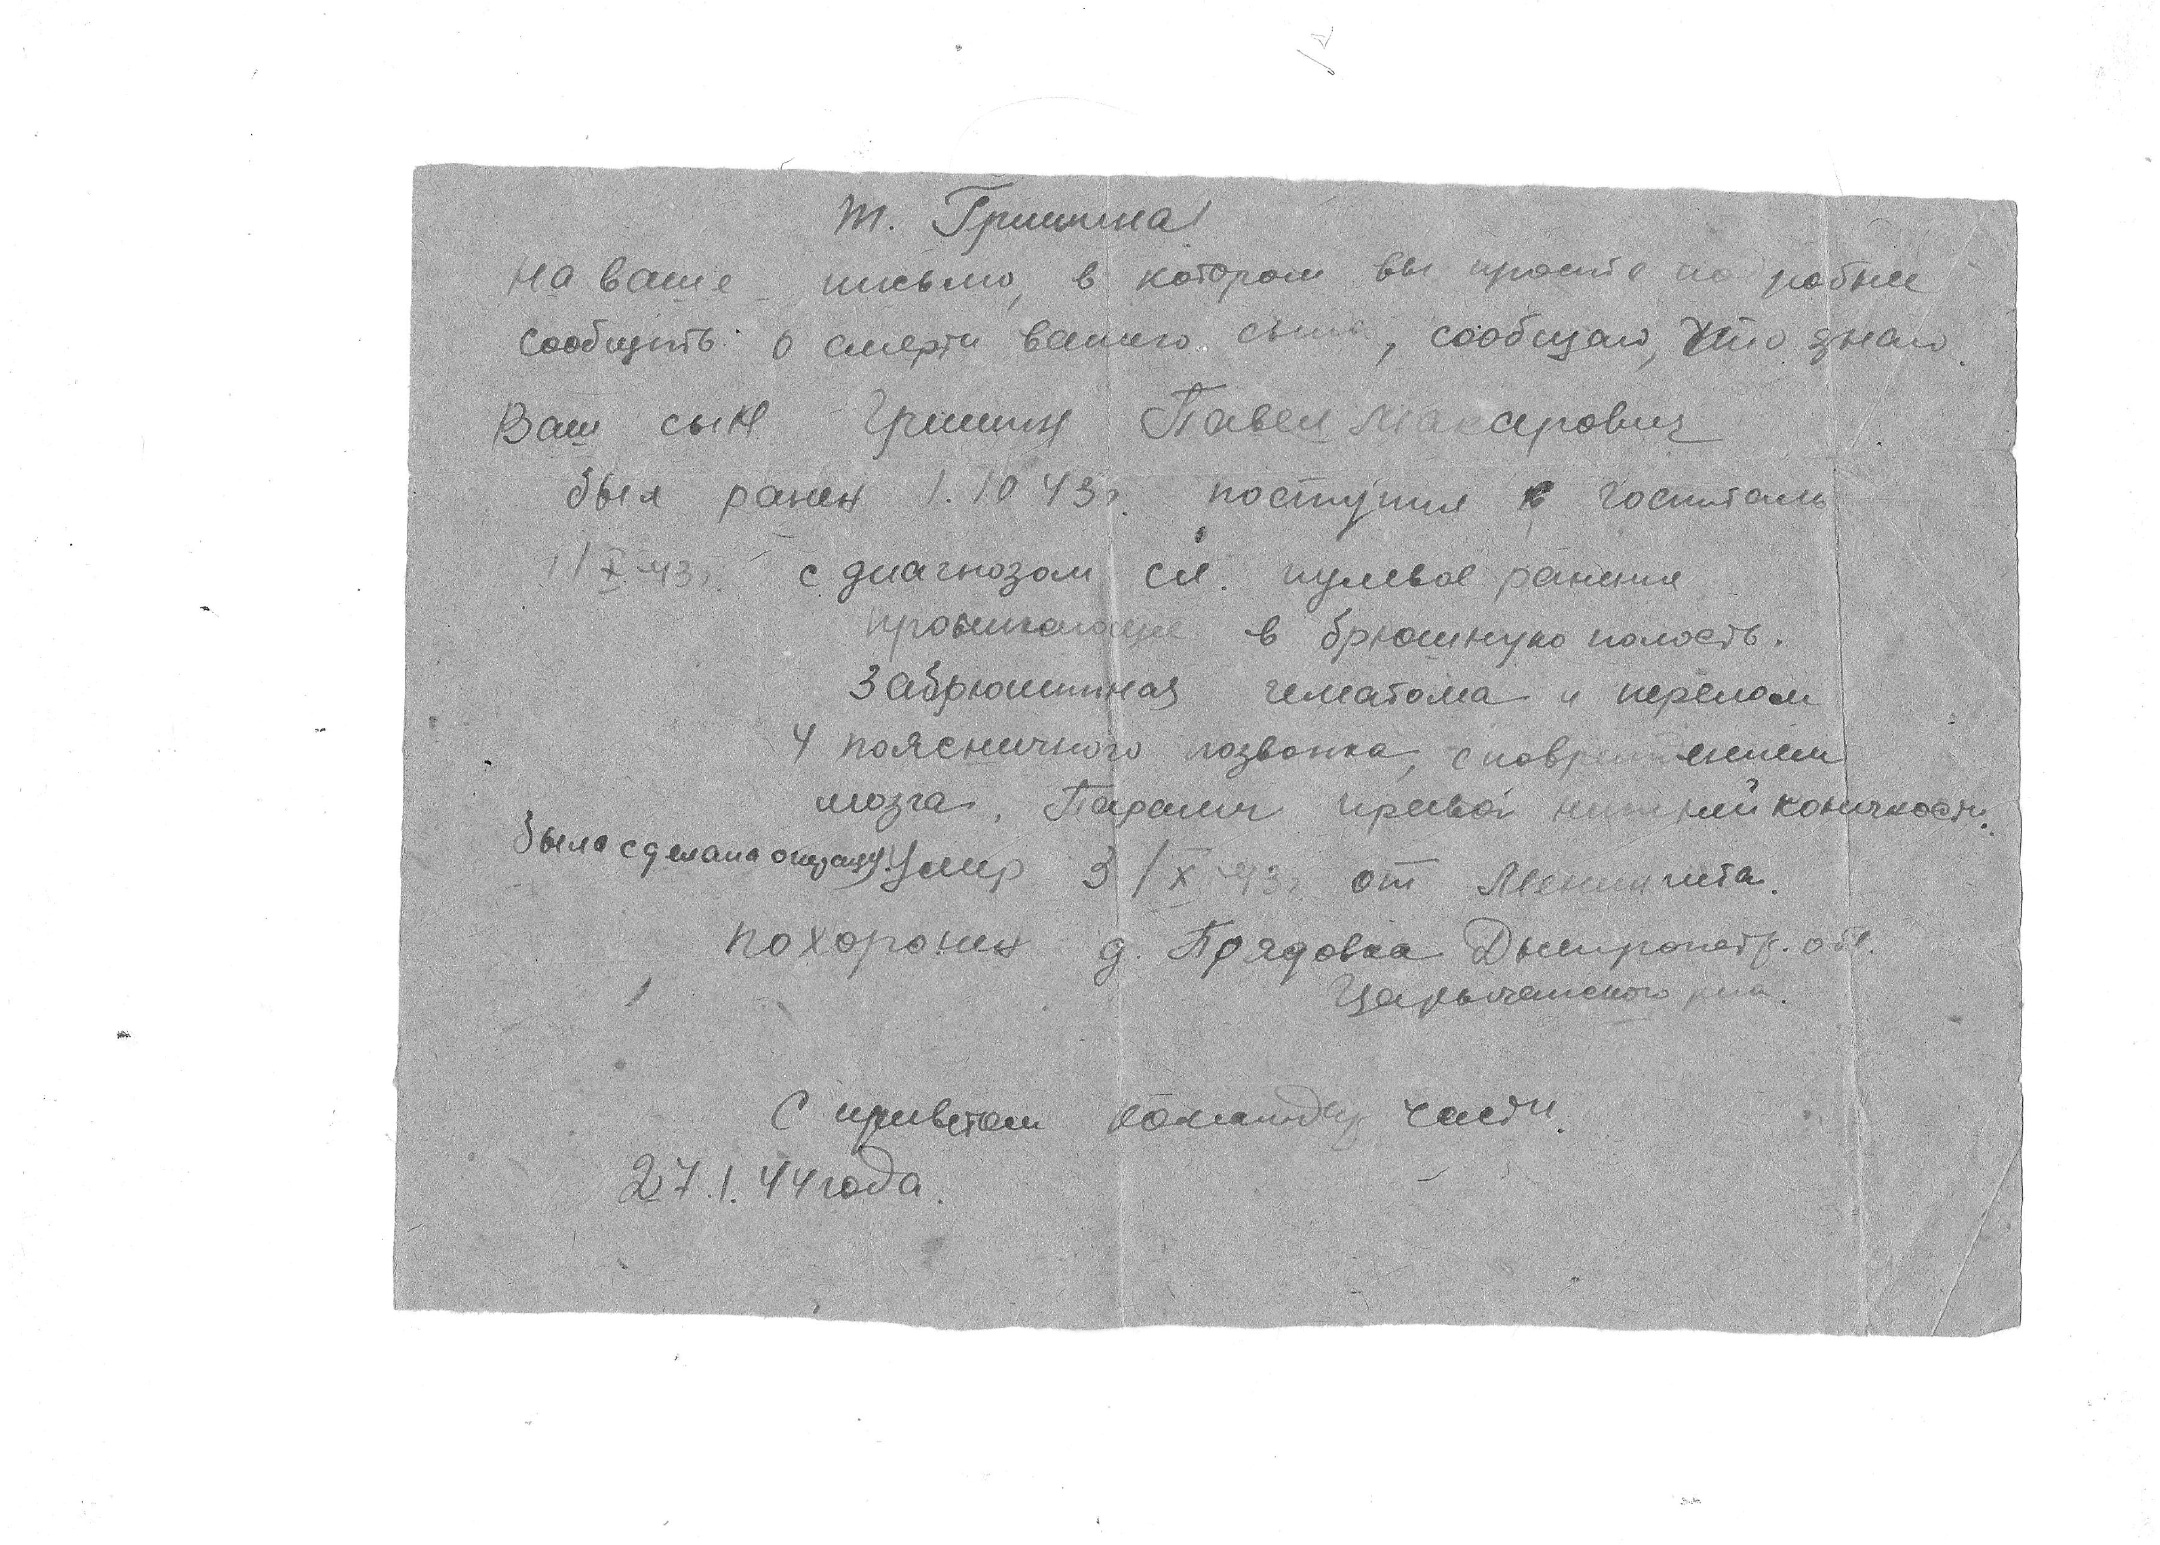 т. Гришина
На ваше письмо, в котором вы просите по робнее
сообщить о смерти вашего сына, сообщаю, что знаю.
Ваш сын Гришин Павел Макарович
был ранен 1.10 43г. поступил в госпиталь
1/X-43г. с диагнозом сл. пулевое ранение
проникающее в брюшную полость.
Забрюшинная гематома и перелом
4 поясничного позвонка, с повреждением
мозга. Паралич правой нижней конечности.
была сделана операция. Умер 3/X-43г. от Менингита.
похоронен д. Прядовка Днепропетр. обл.
Царычанского
С приветом командир части.
27.1.44 года.